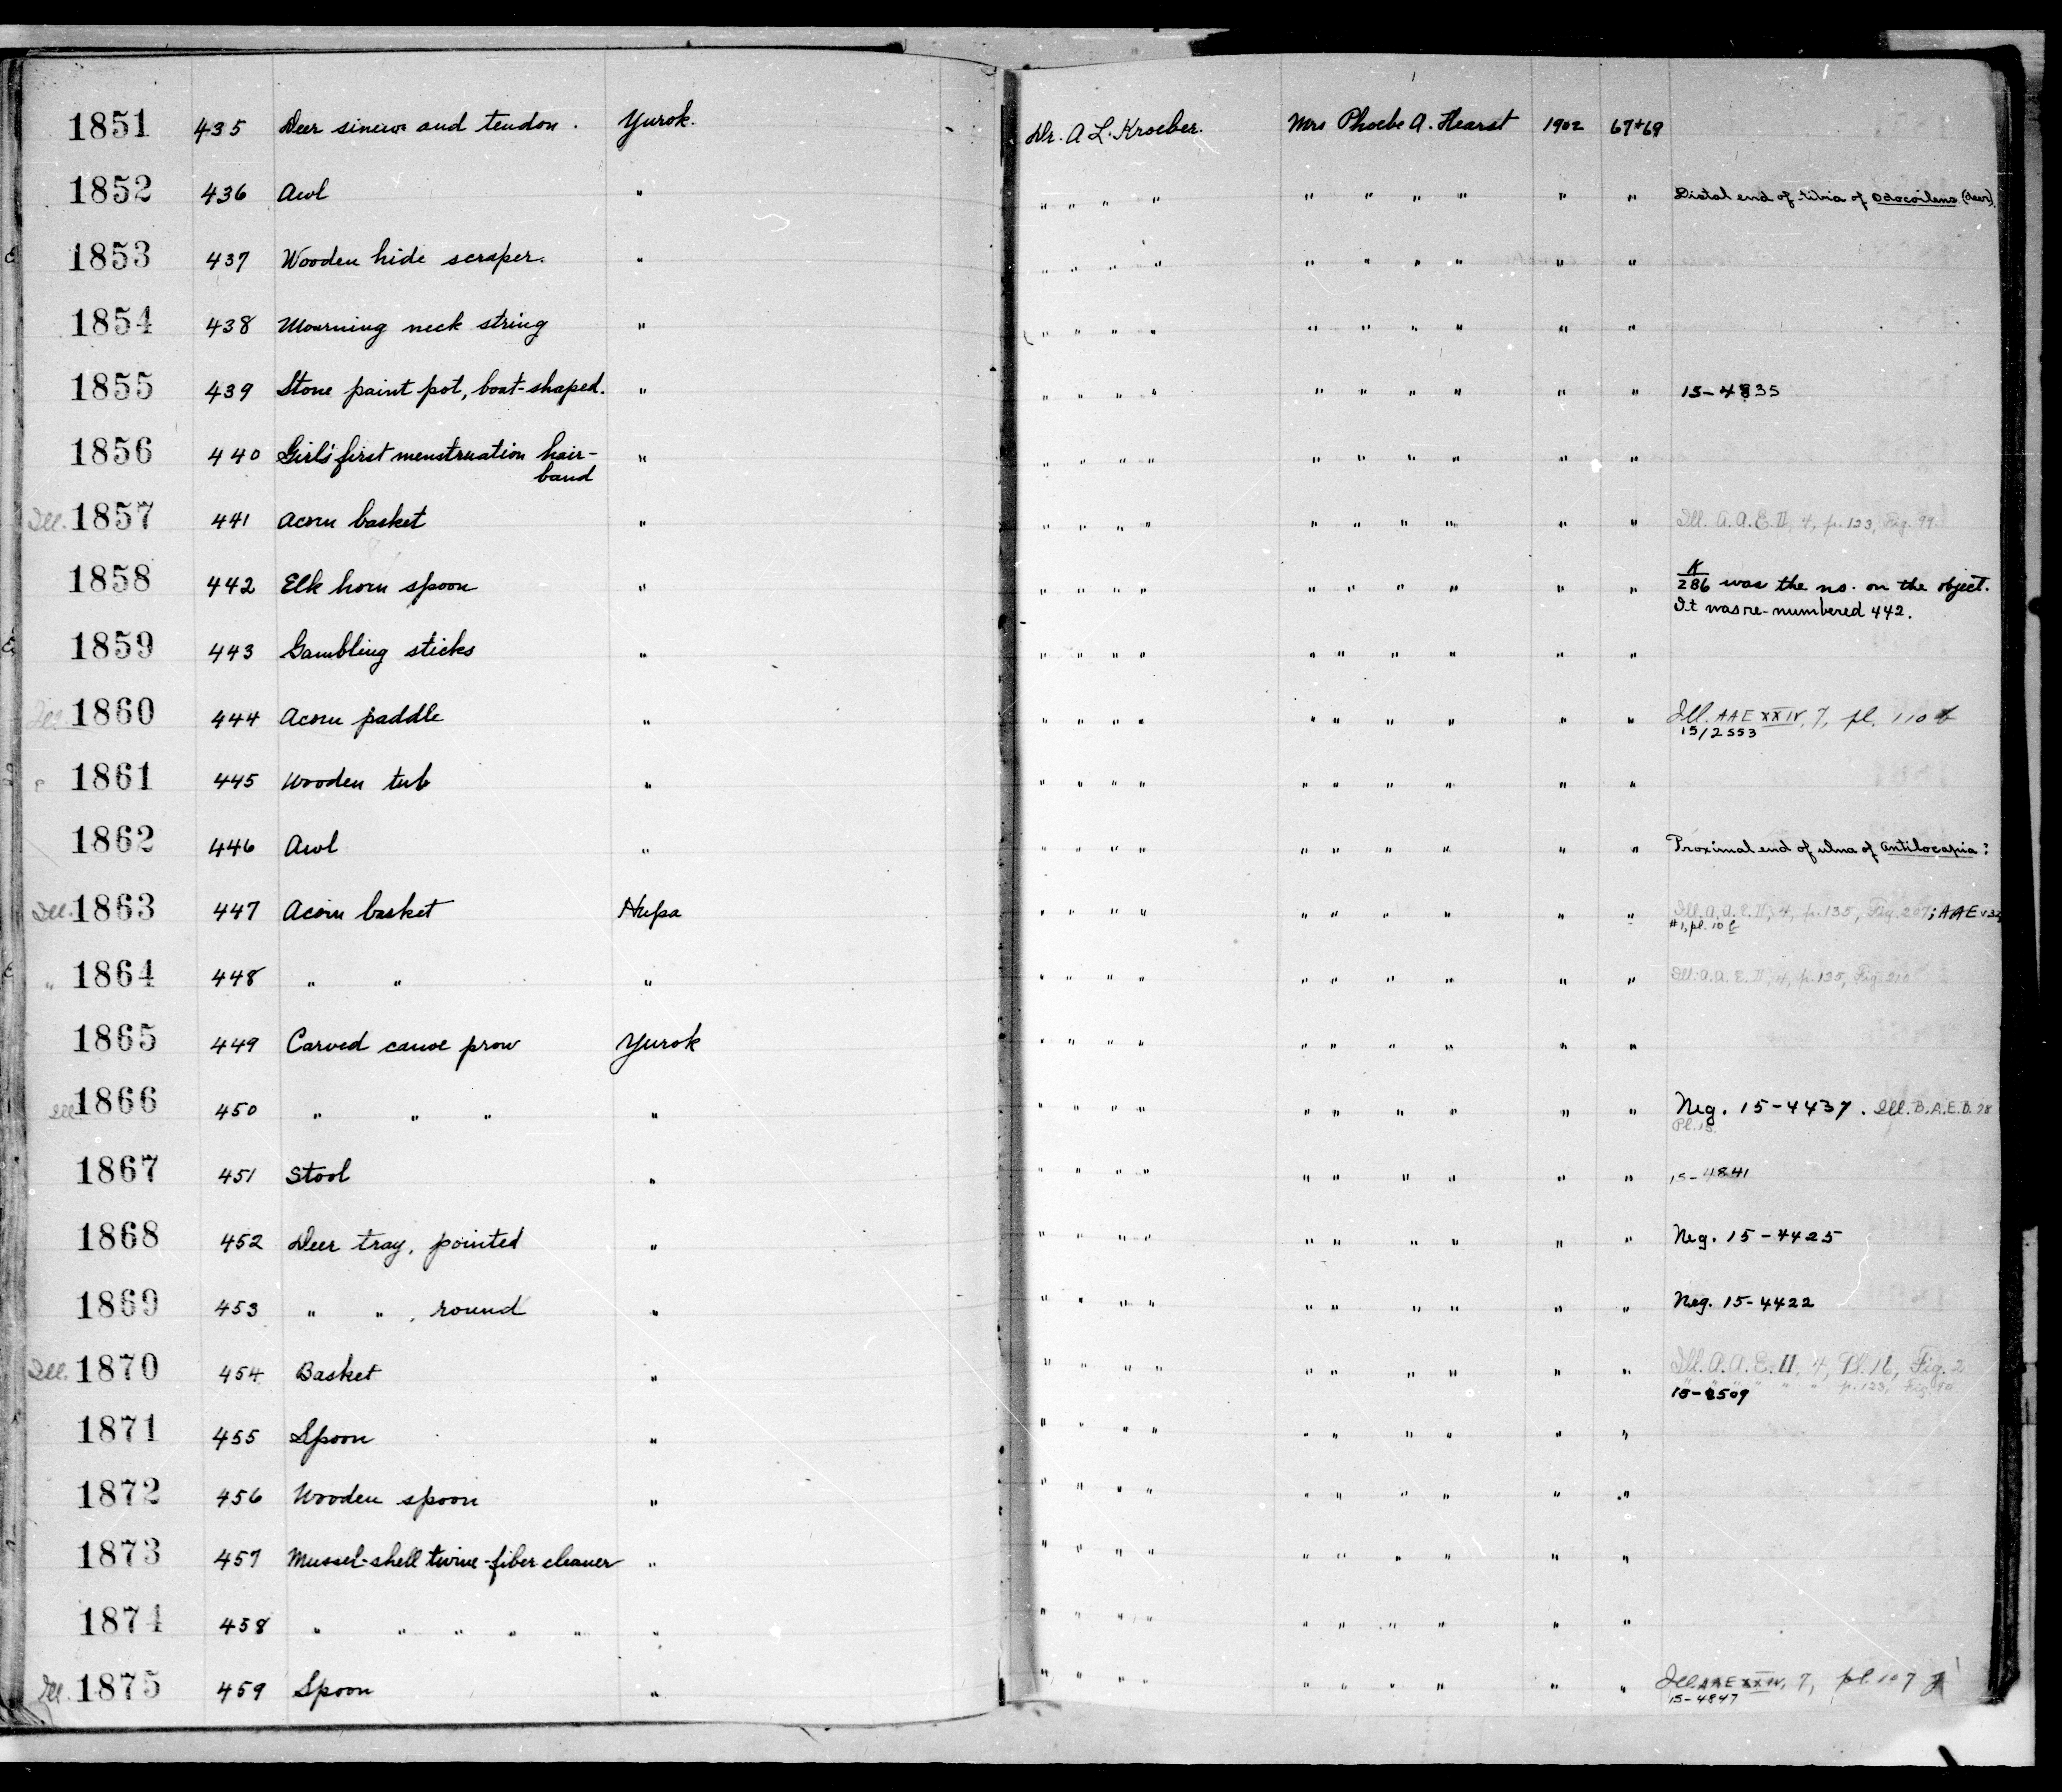 1851 435 Deer sinew and tendon. Yurok. Dr. A L. Kroeber. Mrs Phoebe A. Hearst 1902 67+69
1852 436 Awl " " " " " " " " " " " Distal end of tibia of Odocoileus (deer).
1853 437 Wooden hide scraper. " " " " " " " " " " "
1854 438 Mourning neck string " " " " " " " " " " "
1855 439 Stone paint pot, boat-shaped. " " " " " " " " " " " 15-4835
1856 440 Girl's first menstruation hair- " " " " " " " " " " "
band
Ill. 1857 441 Acorn basket " " " " " " " " " " " Ill. A.A.E. II, 4, p. 123, Fig. 99
1858 442 Elk horn spoon " " " " " " " " " " " K/286 was the no. on the object.
It was re-numbered 442.
1859 443 Gambling sticks " " " " " " " " " " "
Ill. 1860 444 Acorn paddle " " " " " " " " " " " Ill. AAE XXIV, 7, pl. 110
15/2553
1861 445 Wooden tub " " " " " " " " " " "
1862 446 Awl " " " " " " " " " " " Proximal end of ulna of Antilocapia?
Ill. 1863 447 Acorn basket Hupa " " " " " " " " " " Ill. A.A.E. II, 4, p. 135, Fig. 207; AAE v32
#1, pl. 10
" 1864 448 " " " " " " " " " " " " " Ill. A.A.E. II, 4, p. 135, Fig. 210
1865 449 Carved canoe prow Yurok " " " " " " " " " "
Ill 1866 450 " " " " " " " " " " " " " " Neg. 15-4437. Ill. B.A.E.B. 78
Pl. 15.
1867 451 Stool " " " " " " " " " " " 15-4841
1868 452 Deer tray, pointed " " " " " " " " " " " Neg. 15-4425
1869 453 " ", round " " " " " " " " " " " Neg. 15-4422
Ill. 1870 454 Basket " " " " " " " " " " " Ill. A.A.E. II, 4, Pl. 16, Fig. 2
15-2509 " " p. 123, Fig. 90
1871 455 Spoon " " " " " " " " " " "
1872 456 Wooden spoon " " " " " " " " " " "
1873 457 Mussel-shell twine-fiber cleaner " " " " " " " " " " "
1874 458 " " " " " " " " " " " " " " " "
Ill. 1875 459 Spoon " " " " " " " " " " " Ill. AAE XXIV, 7, pl. 107
15-4847